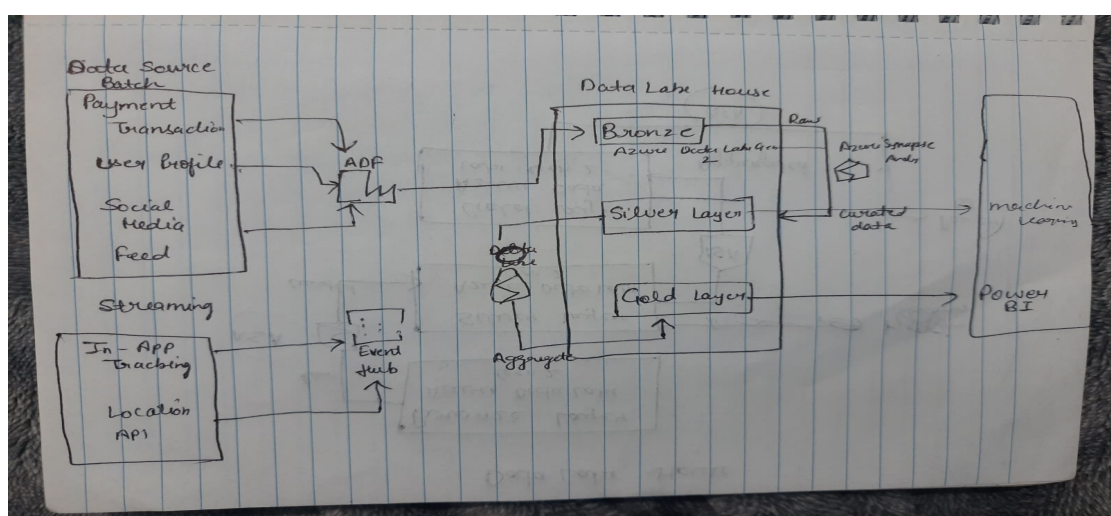 Data Source
Batch
Payment
Transaction
User Profile
Social
Media
Feed
ADF
Streaming
In-App
Tracking
Location
API
Event
Hub
Data Lake House
Bronze
Azure Data Lake Gen
2
Raw
Azure Synapse
Silver Layer
curated
data
Delta
Lake
Gold Layer
Aggregate
Machin
Power
BI